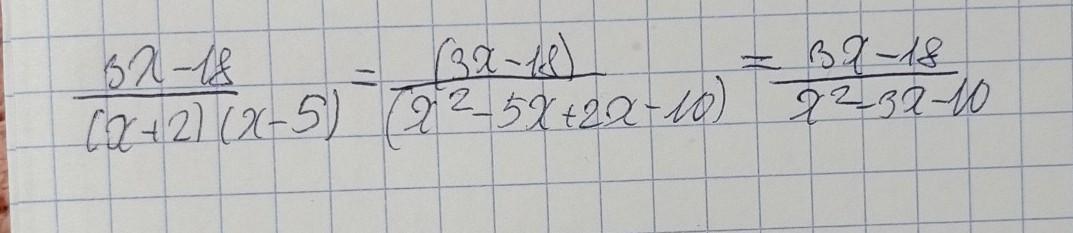 (3x-18)/((x+2)(x-5)) = (3x-18)/(x²-5x+2x-10) = (3x-18)/(x²-3x-10)